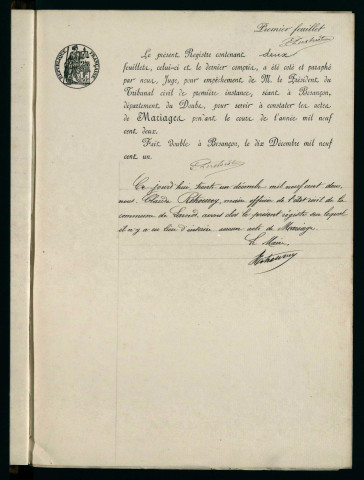 Premier feuillet
RÉPUBLIQUE FRANÇAISE
Le présent Registre contenant deux
feuillets, celui-ci et le dernier compris, a été coté et paraphé
par nous, Juge, pour empêchement de M. le Président du
Tribunal civil de première instance, séant à Besançon,
département du Doubs, pour servir à constater les actes
de Mariages pendant le cours de l'année mil neuf
cent deux.
Fait double à Besançon, le dix Décembre mil neuf
cent un.
Ce jourd'hui, trente un décembre mil neuf cent deux
nous, Claude maire officier de l'état civil de la
commune de avons clos le présent registre sur lequel
il n'y a eu lieu d'inscrire aucun acte de Mariage
Le Maire